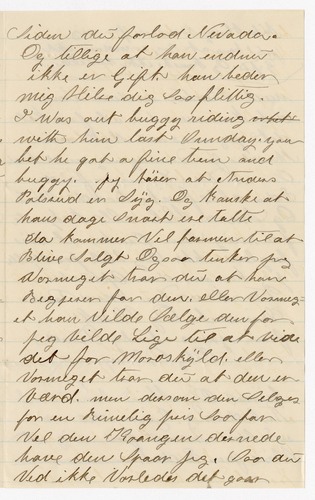 Siden du forlod Nevada.
Og tillige at han endnu
ikke er Gift. han beder
mig Hilse dig Saa flittig.
I was out buggy riding
with him last Sunday. you
bet he got a fine team and
buggy. jeg hører at Anders
Palsrud er Syg. Og kanske at
hans dage Snart ere talte
da kommer Vel farmen til at
Blive Salgt Ogsaa tenker jeg
Vormeget tror du at han
Begjerer for den. eller Vormeg-
et han Vilde Sælge den for
jeg vilde Lige til at vide
det for Moroskyld. eller
Vormeget tror du at den er
Værd. men dersom den Selges
for en rimelig pris Saa faar
Vel den dernede
have den Spaar jeg. Saa du
Ved ikke Vorledes det gaar